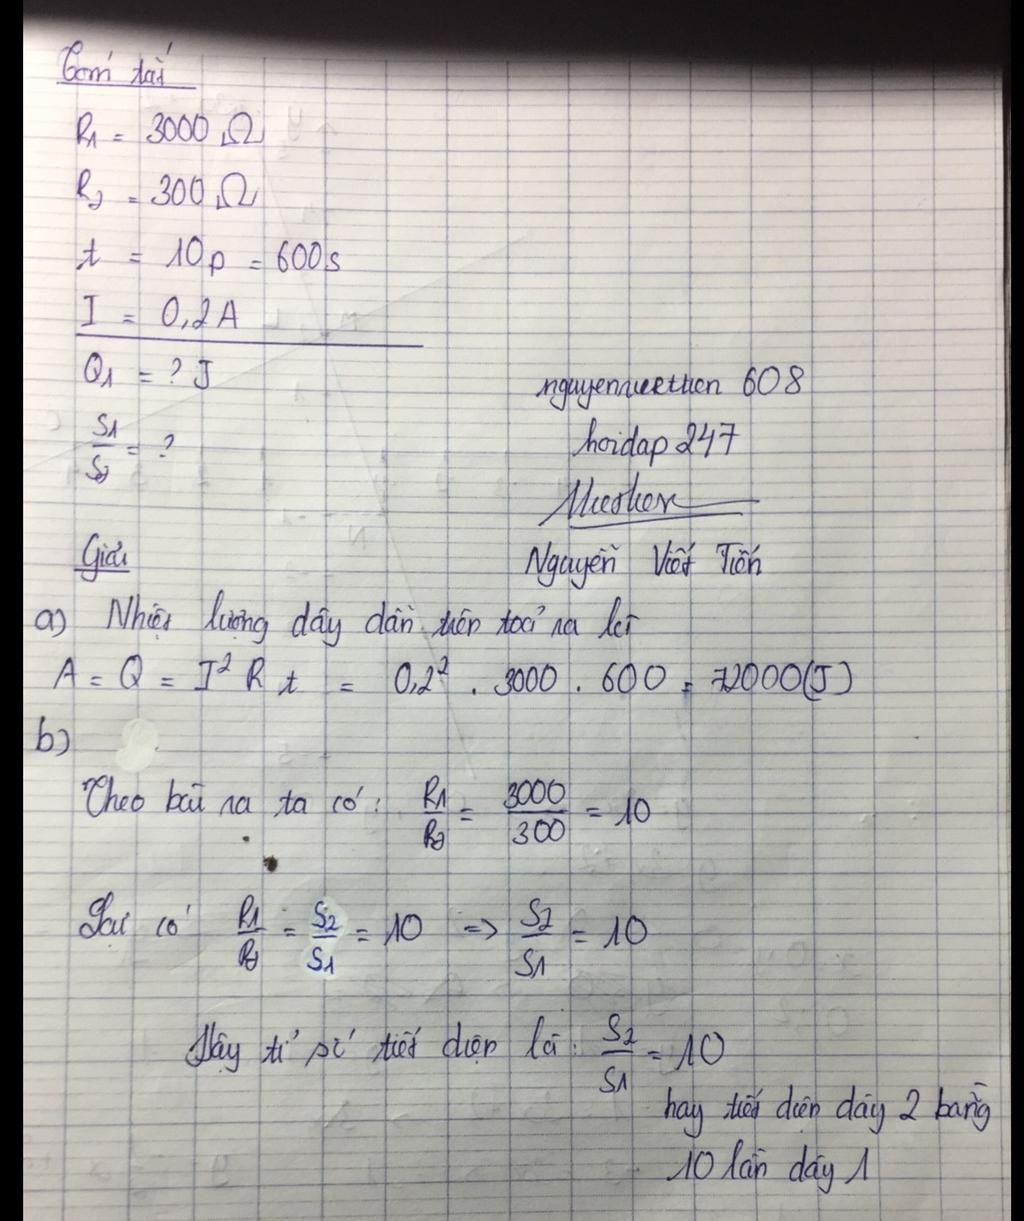 Tóm tắt
R1 = 3000 Ω
R2 = 300 Ω
t = 10p = 600s
I = 0,2A
Q1 = ? J
S1/S2 = ?
nguyenviettien 608
hoidap 247
Nguyễn Viết Tiến
Giải
a) Nhiệt lượng dây dẫn trên toả ra là
A = Q = I² R t = 0,2² . 3000 . 600 = 72000(J)
b)
Theo bài ra ta có: R1/R2 = 3000/300 = 10
Lại có R1/R2 = S2/S1 = 10 => S2/S1 = 10
Vậy tỉ số tiết diện là: S2/S1 = 10
hay tiết diện dây 2 bằng
10 lần dây 1